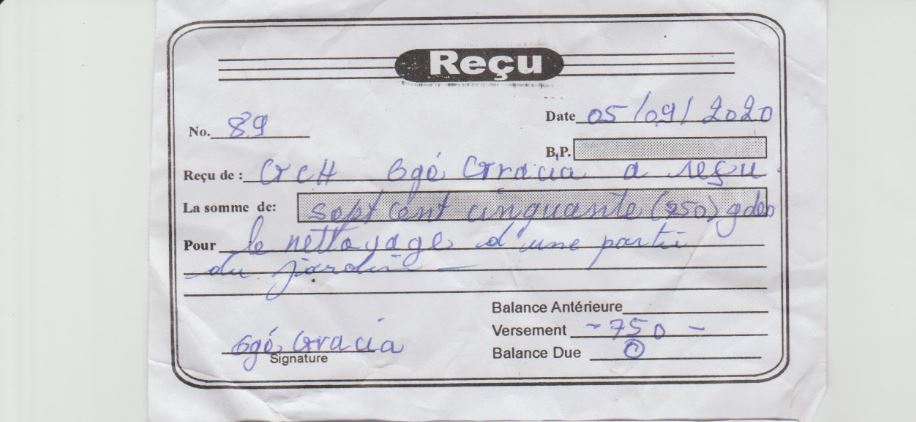 Reçu
No. 89
Date 05/09/2020
B.P.
Reçu de : GCH Ogé Gracia a reçu
La somme de: sept cent cinquante (750) gdes
Pour le nettoyage d'une partie
du jardin
Balance Antérieure
Versement - 750 -
Balance Due 0
Ogé Gracia
Signature